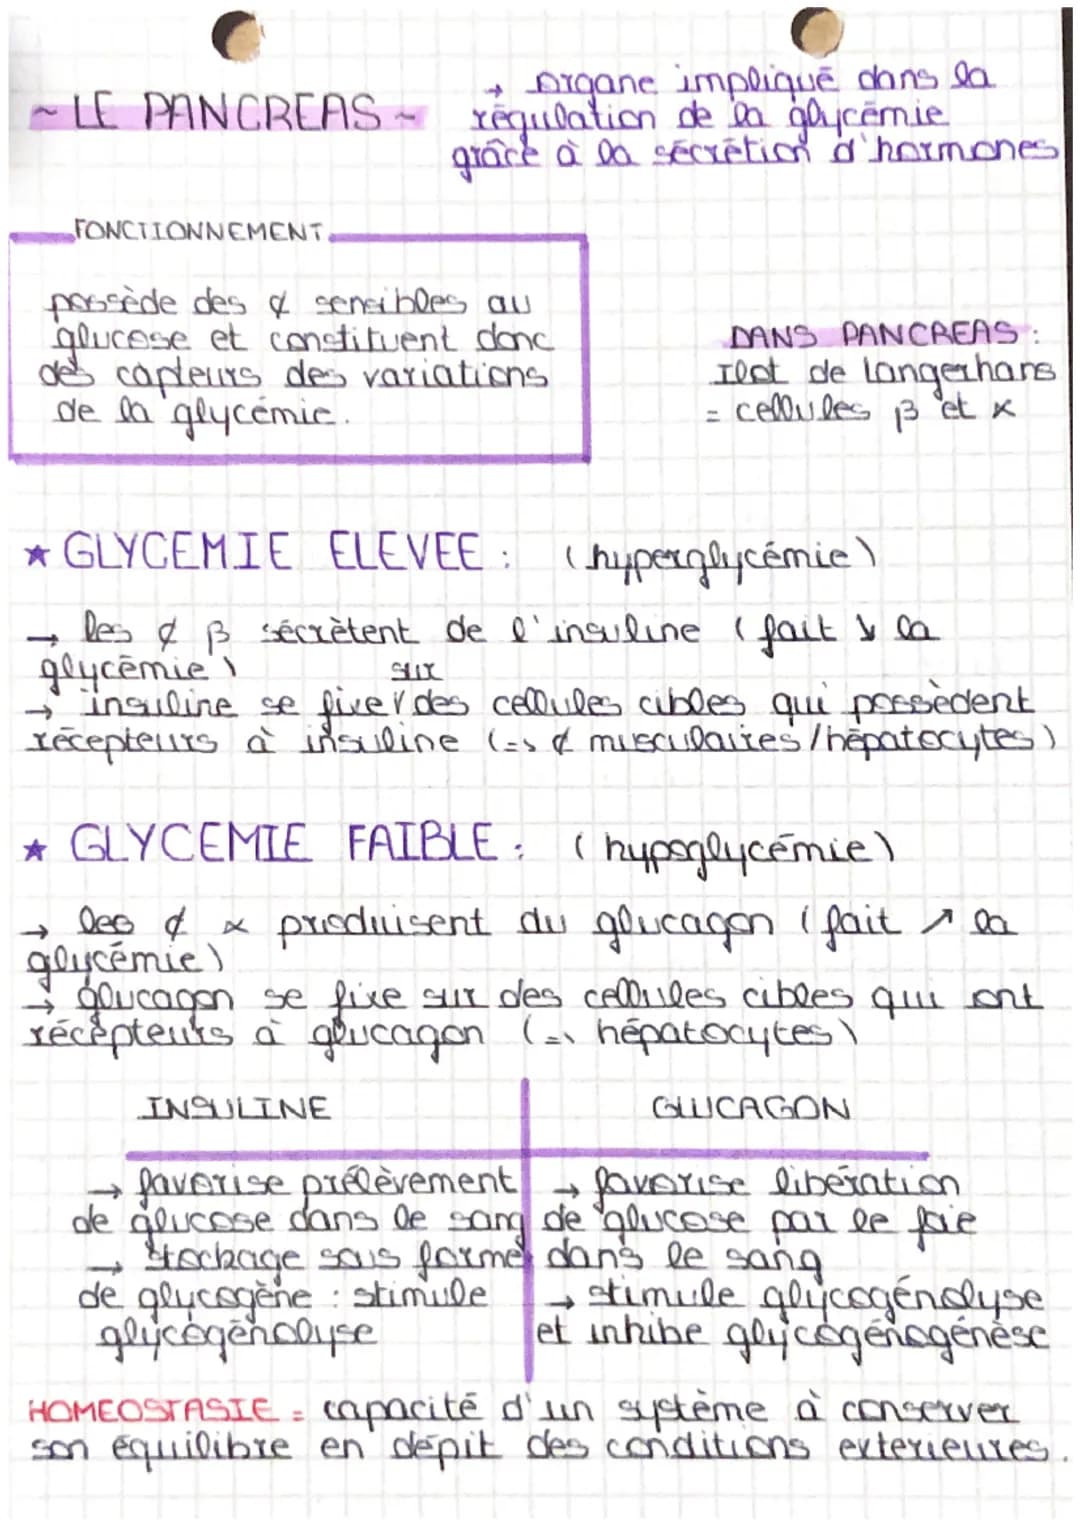 ~ LE PANCREAS ~
→ organe impliqué dans la
régulation de la glycémie
grâce à la sécrétion d'hormones
FONCTIONNEMENT
possède des ₵ sensibles au
glucose et constituent donc
des capteurs des variations
de la glycémie.
DANS PANCREAS :
Ilot de Langerhans
= cellules β et α
★ GLYCEMIE ELEVEE : (hyperglycémie)
→ les ₵ β sécrètent de l'insuline (fait ↘ la
glycémie)
sur
→ insuline se fixe √ des cellules cibles qui possèdent
récepteurs à insuline (=> ₵ musculaires/hépatocytes)
★ GLYCEMIE FAIBLE : (hypoglycémie)
→ les ₵ α produisent du glucagon (fait ↗ la
glycémie)
→ glucagon se fixe sur des cellules cibles qui ont
récepteurs à glucagon (=> hépatocytes)
INSULINE
→ favorise prélèvement
de glucose dans le sang
→ stockage sous forme
de glycogène : stimule
glycégénolyse
GLUCAGON
→ favorise libération
de glucose par le foie
dans le sang
→ stimule glycogénolyse
et inhibe glycogénogénèse
HOMEOSTASIE = capacité d'un système à conserver
son équilibre en dépit des conditions exterieures.